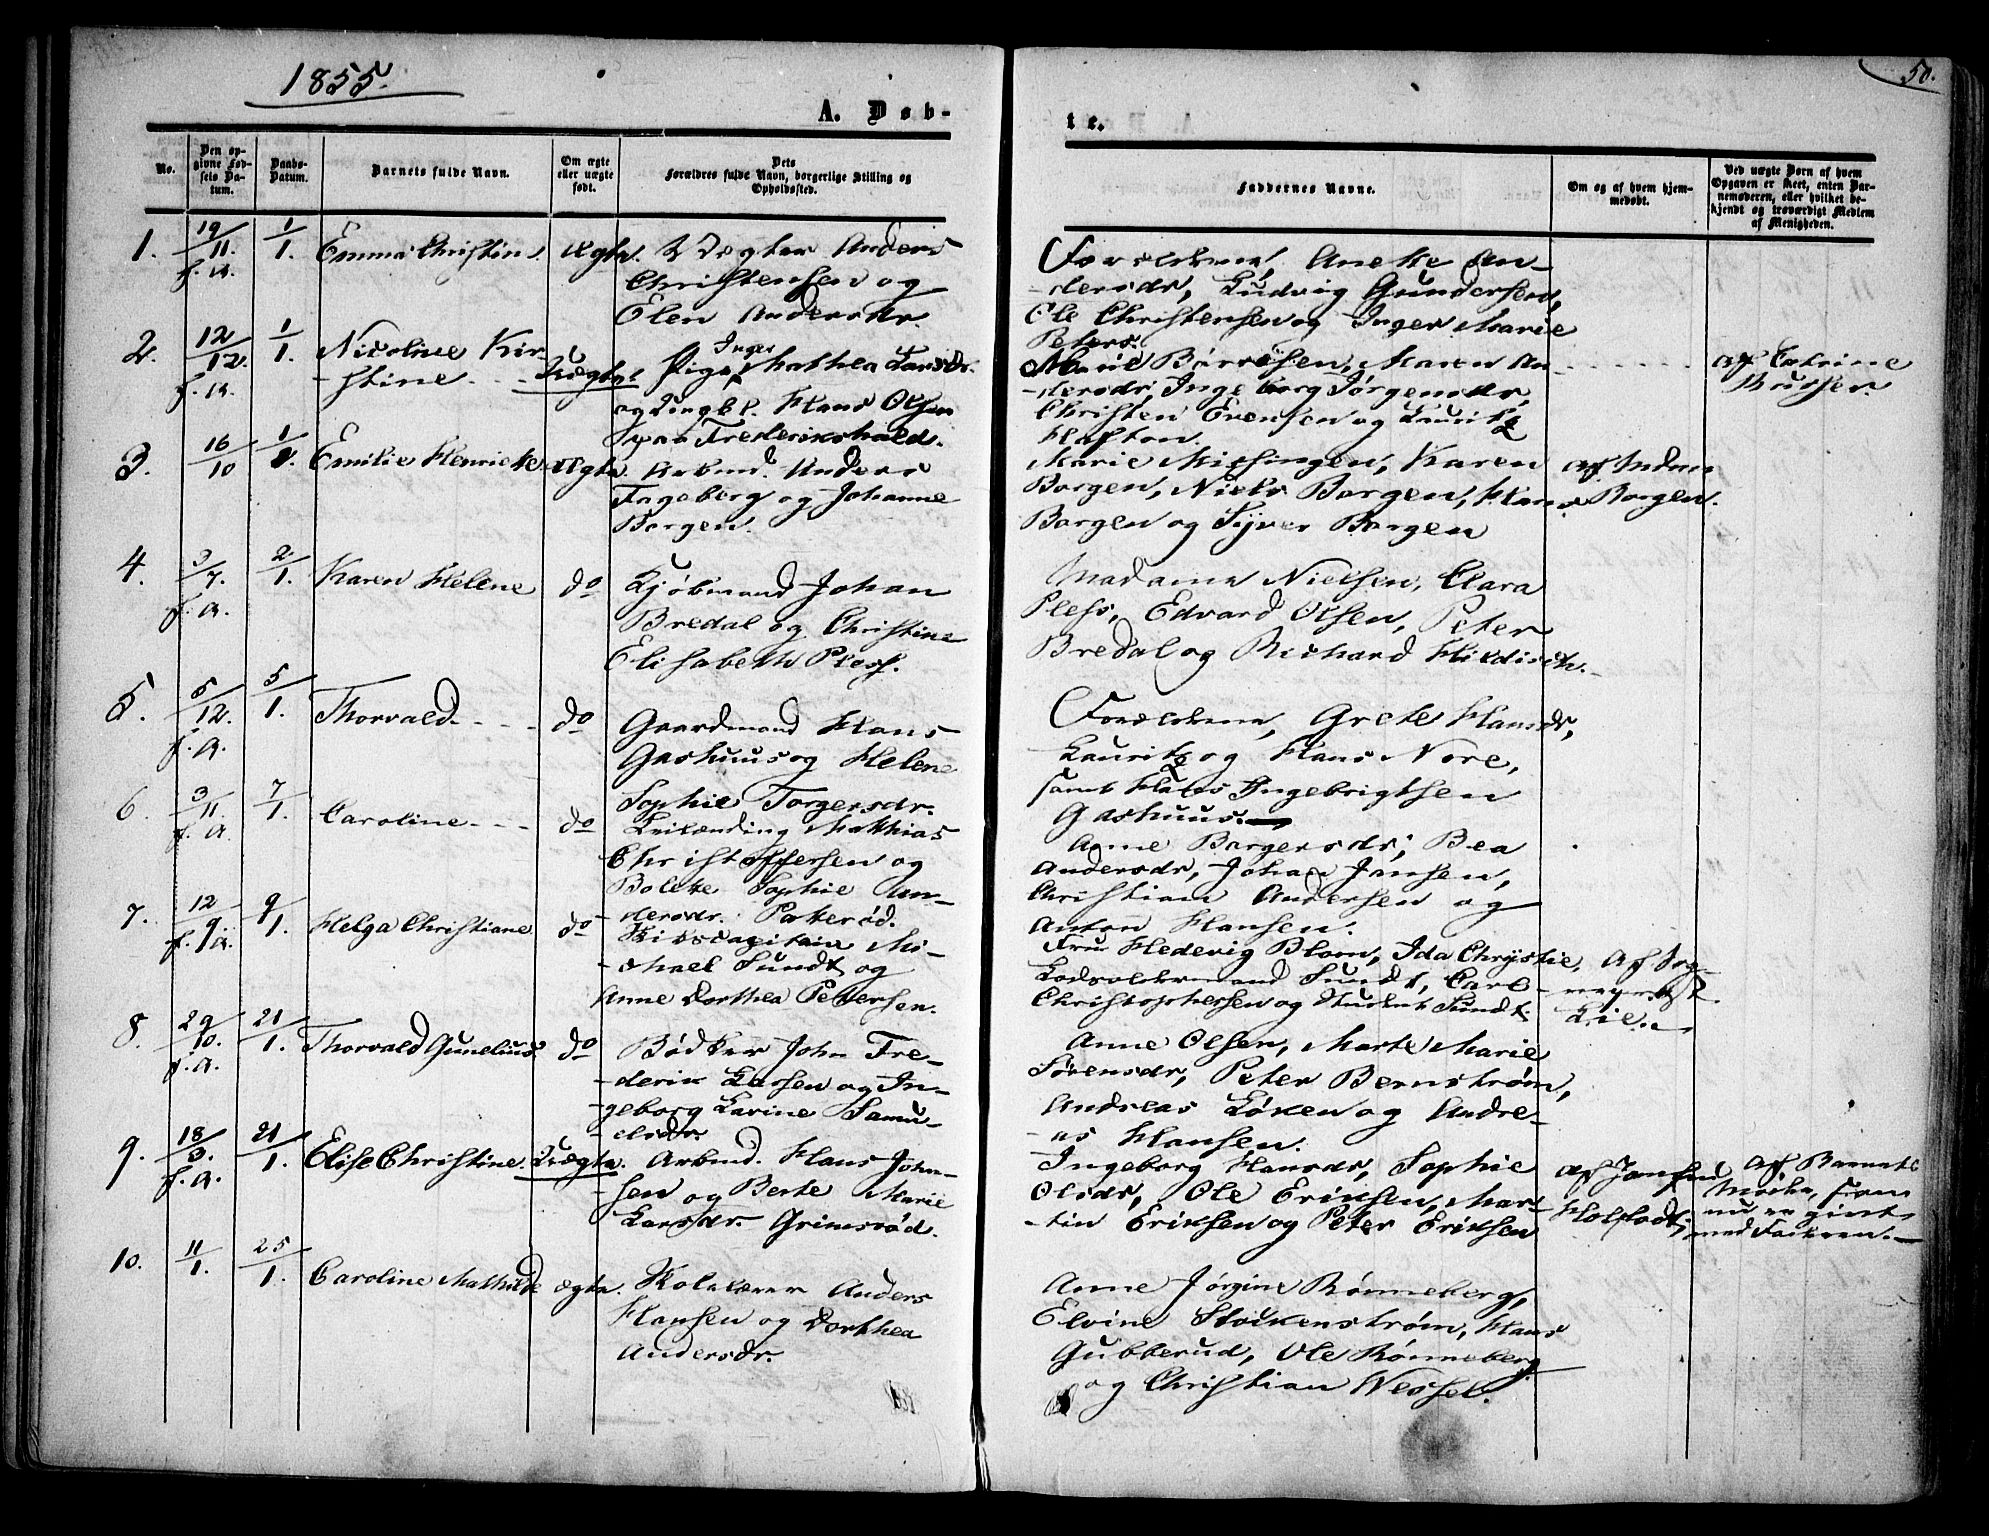 1855.
50.
A. Døb-
te.
No.
Den op-
givne Fød-
sels Da-
tum.
Daabs-
Datum.
Barnets fulde Navn.
Om ægte
eller uægte
født.
Dets
Forældres fulde Navn, borgerlige Stilling og
Opholdssted.
Faddernes Navne.
Om og af hvem hjem-
medøbt.
Ved uægte Børn af hvem
Opgaven er skeet, enten Bar-
nemoderen, eller hvilket be-
kjendt og troværdigt Medlem
af Menigheden.
1. 19/11. f. A. 1/1. Emma Christine Ægte.
Vægter Anders
Christensen og
Elen Andersdr.
Forældrene, Anete An-
dersdr, Ludvig Gundersen,
Ole Christensen og Inger Marie
Petersdr.
2. 12/12. f. A. 1/1. Nicoline Kir-
stine Uægte
Pige Inger Mathea Larsdr.
og Ungkl. Hans Olsen
paa Frederikshald.
Marie Børresen, Maren An-
dersdr, Ingeborg Jørgensdr,
Christen Evensen og Lauritz
Hafton.
af Catrine
3. 16/10 1/1. Emilie Henriette Ægte.
Arbmd. Anders
Fageberg og Johanne
Borgen.
Marie Missingen, Karen
Borgen, Niels Borgen, Hans
Borgen og Syver Borgen
af Madam
Borgen.
4. 3/7. f. A. 2/1. Karen Helene do
Kjøbmand Johan
Bredal og Christine
Elisabeth Pless.
Madame Nielsen, Clara
Pless, Edvard Olsen, Peter
Bredal og Richard Hilditch.
5. 5/12. f. A. 5/1. Thorvald. do
Gaardmand Hans
Gashuus og Helene
Sophie Torgersdr.
Forældrene, Grete Hansdr,
Lauritz og Hans Nore,
samt Hans Ingebrigtsen
Gashuus.
6. 3/11. f. A. 7/1. Caroline do
Leilænding Mathias
Christoffersen og
Bolette Sophie An-
dersdr.
Anne Borgersdr, Bea
Andersdr, Johan Jansen,
Christian Andersen og
Anton Hansen.
7. 12/9. f. A. 9/1. Helga Christiane do
Mi-
chael Sundt og
Anne Dorthea Petersen.
Fru Hedevig Blom, Ida Chrystie,
Sundt, Carl
Christophersen og Student Sundt.
Af Jor-
Lie.
8. 29/10. f. A. 21/1. Thorvald Gunelius do
Bødker John Fre-
derik Larsen og In-
geborg Karine Samu-
elsdr.
Anne Olsen, Marte Marie
Sørensdr, Peter Bernstrøm,
Andreas Løken og Andre-
as Hansen.
9. 18/3. f. A. 21/1. Elise Christine. Uægte.
Arbmd. Hans John-
sen og Berte Marie
Larsdr. Grimsrød.
Ingeborg Hansdr, Sophie
Olsdr, Ole Eriksen, Mar-
tin Eriksen og Peter Eriksen
af Jansen
Af Barnets
Moder, som
nu er gift
med Faderen.
10. 11/1. 25/1. Caroline Mathilde ægte.
Skolelærer Anders
Hansen og Dorthea
Andersdr.
Anne Jørgine Rønneberg,
Elvine Stoickenstrøm, Hans
Gubberud, Ole Rønneberg
og Christian Wessel.